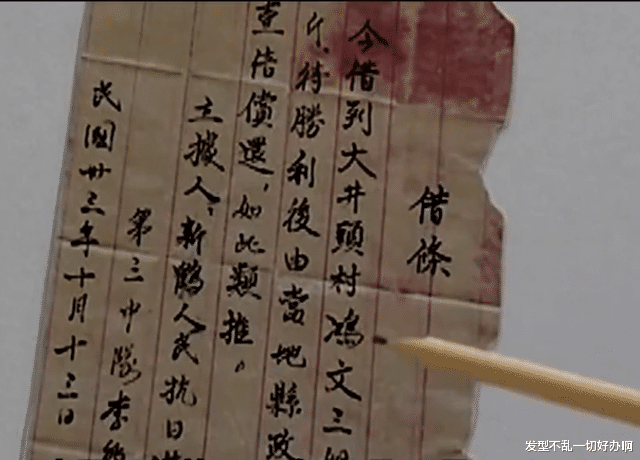 借條
今借到大井頭村鴻文三
斤，待勝利後由當地縣政
償還，如此類推。
立據人，新鶴人民抗日
第三中隊李
民國卅三年十月十三日
发型不乱一切好办啊